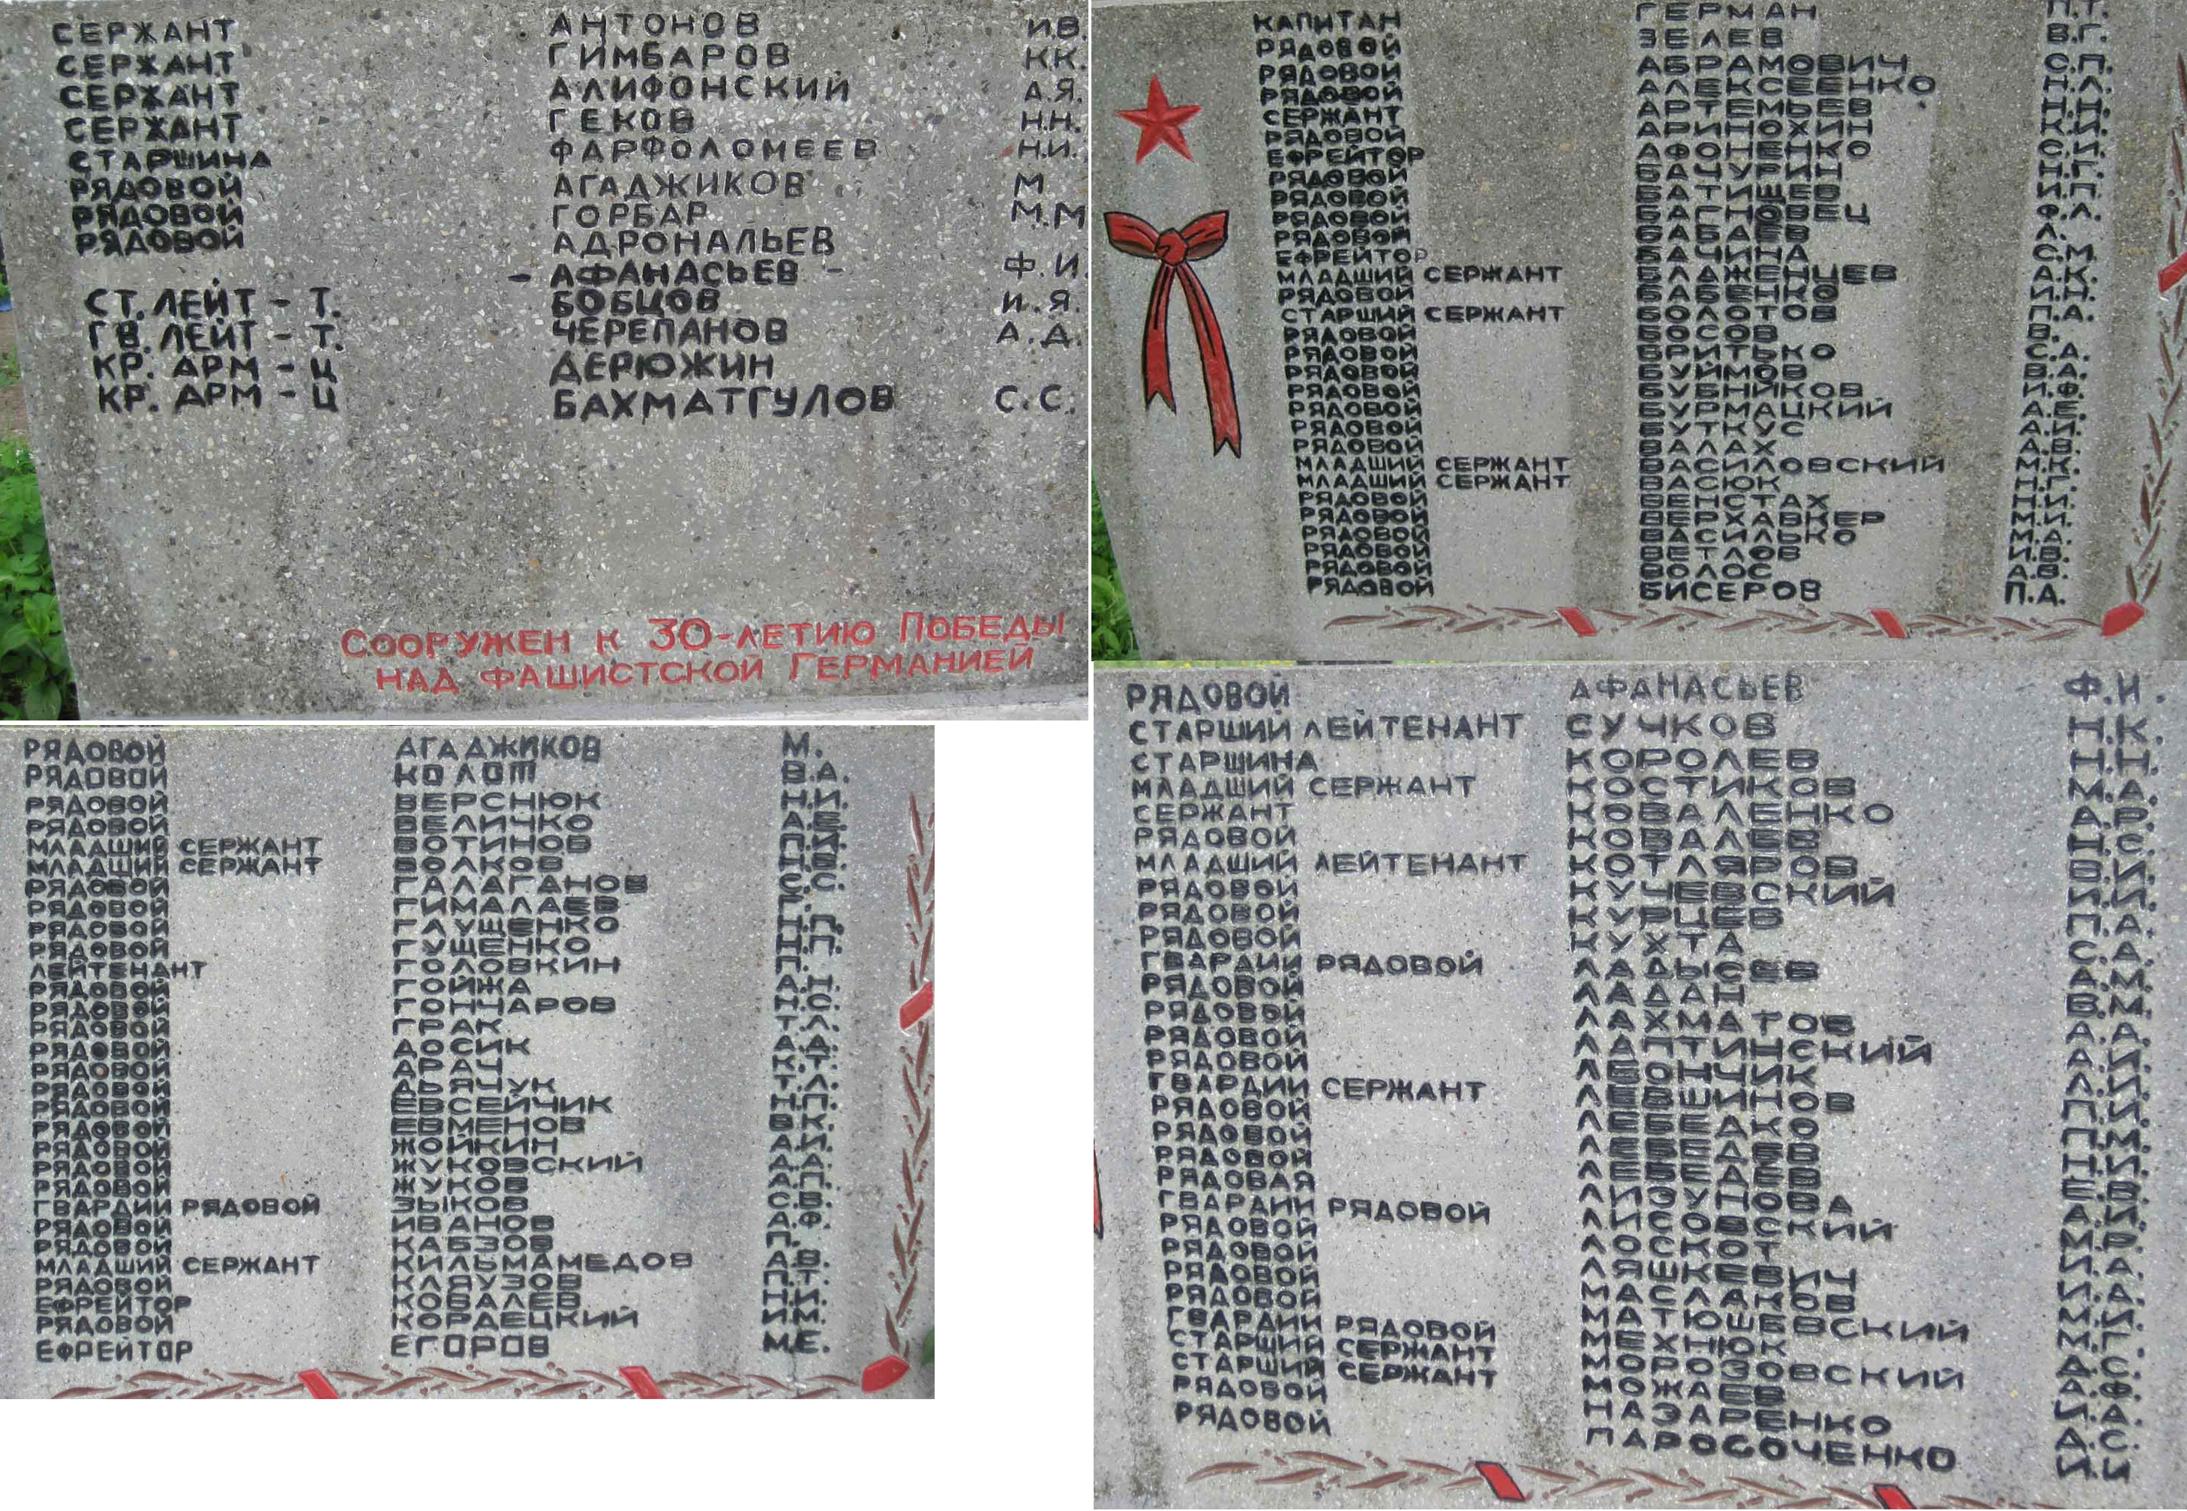 СЕРЖАНТ АНТОНОВ И.В.
СЕРЖАНТ ГИМБАРОВ К.К.
СЕРЖАНТ АЛИФОНСКИЙ А.Я.
СЕРЖАНТ ГЕКОВ Н.Н.
СТАРШИНА ФАРФОЛОМЕЕВ Н.И.
РЯДОВОЙ АГАДЖИКОВ М.
РЯДОВОЙ ГОРБАР М.М
РЯДОВОЙ АДРОНАЛЬЕВ
- АФАНАСЬЕВ - Ф.И.
СТ. ЛЕЙТ - Т. БОБЦОВ И.Я.
ГВ. ЛЕЙТ - Т. ЧЕРЕПАНОВ А.Д.
КР. АРМ - Ц ДЕРЮЖИН
КР. АРМ - Ц БАХМАТГУЛОВ С.С.
СООРУЖЕН К 30-ЛЕТИЮ ПОБЕДЫ
НАД ФАШИСТСКОЙ ГЕРМАНИЕЙ
КАПИТАН ГЕРМАН П.Т.
РЯДОВОЙ ЗЕЛЕВ В.Г.
РЯДОВОЙ АБРАМОВИЧ С.П.
РЯДОВОЙ АЛЕКСЕЕНКО Н.Л.
СЕРЖАНТ АРТЕМЬЕВ Н.Н.
РЯДОВОЙ АРИНОХИН К.И.
ЕФРЕЙТОР АФОНЕНКО С.И.
РЯДОВОЙ БАЧУРИН Н.Г.
РЯДОВОЙ БАТИЩЕВ И.П.
РЯДОВОЙ БАГНОВЕЦ Ф.Л.
РЯДОВОЙ БАБАЕВ Л.
ЕФРЕЙТОР БАЧИНА С.М.
МЛАДШИЙ СЕРЖАНТ БЛАЖЕНЦЕВ А.К.
РЯДОВОЙ БАБЕНКО И.Н.
СТАРШИЙ СЕРЖАНТ БОЛОТОВ П.А.
РЯДОВОЙ БОСОВ В.
РЯДОВОЙ БРИТЬКО С.А.
РЯДОВОЙ БУЙМОВ В.А.
РЯДОВОЙ БУБНИКОВ И.Ф.
РЯДОВОЙ БУРМАЦКИЙ А.Е.
РЯДОВОЙ БУТКУС А.И.
РЯДОВОЙ ВАЛАХ А.В.
МЛАДШИЙ СЕРЖАНТ ВАСИЛОВСКИЙ М.К.
МЛАДШИЙ СЕРЖАНТ ВАСЮК Н.Г.
РЯДОВОЙ ВЕНСТАХ Н.И.
РЯДОВОЙ ВЕРХАВКЕР М.И.
РЯДОВОЙ ВАСИЛЬКО М.А.
РЯДОВОЙ ВЕТЛОВ И.В.
РЯДОВОЙ ВОЛОС А.В.
РЯДОВОЙ БИСЕРОВ П.Д.
РЯДОВОЙ АГАДЖИКОВ М.
РЯДОВОЙ КОЛОТ В.А.
РЯДОВОЙ ВЕРСНЮК Н.И.
РЯДОВОЙ ВЕЛИЧКО А.Е.
МЛАДШИЙ СЕРЖАНТ ВОТИНОВ П.И.
МЛАДШИЙ СЕРЖАНТ ВОЛКОВ Н.Е.
РЯДОВОЙ ГАЛАГАНОВ С.С.
РЯДОВОЙ ГИМАЛАЕВ Г.
РЯДОВОЙ ГЛУЩЕНКО Н.П.
РЯДОВОЙ ГУЩЕНКО Н.П.
ЛЕЙТЕНАНТ ГОЛОВКИН П.
РЯДОВОЙ ГОЙЖА А.Н.
РЯДОВОЙ ГОНЧАРОВ Н.С.
РЯДОВОЙ ГРАК Т.Л.
РЯДОВОЙ ДОСИК А.Д.
РЯДОВОЙ ДРАЦ К.Т.
РЯДОВОЙ ДЬЯЧУК Т.Л.
РЯДОВОЙ ЕВСЕЙЧИК Н.П.
РЯДОВОЙ ЕВМЕНОВ В.К.
РЯДОВОЙ ЖОЙКИН А.И.
РЯДОВОЙ ЖУКОВСКИЙ А.А.
РЯДОВОЙ ЖУКОВ А.П.
ГВАРДИИ РЯДОВОЙ ЗЫКОВ С.В.
РЯДОВОЙ ИВАНОВ А.Ф.
РЯДОВОЙ КАБЗОВ П.
МЛАДШИЙ СЕРЖАНТ КИЛЬМАМЕДОВ А.В.
РЯДОВОЙ КЛЯУЗОВ П.Т.
ЕФРЕЙТОР КОВАЛЕВ Н.И.
РЯДОВОЙ КОРДЕЦКИЙ И.М.
ЕФРЕЙТОР ЕГОРОВ М.Е.
РЯДОВОЙ АФАНАСЬЕВ Ф.И.
СТАРШИЙ ЛЕЙТЕНАНТ СУЧКОВ Н.К.
СТАРШИНА КОРОЛЕВ Н.Н.
МЛАДШИЙ СЕРЖАНТ КОСТИКОВ М.А.
СЕРЖАНТ КОВАЛЕНКО А.Р.
РЯДОВОЙ КОВАЛЕВ Н.С.
МЛАДШИЙ ЛЕЙТЕНАНТ КОТЛЯРОВ В.И.
РЯДОВОЙ КУЧЕВСКИЙ И.И.
РЯДОВОЙ КУРЦЕВ П.А.
РЯДОВОЙ КУХТА С.А.
ГВАРДИИ РЯДОВОЙ ЛАДЫСЕВ А.М.
РЯДОВОЙ ЛАДАН В.М.
РЯДОВОЙ ЛАХМАТОВ А.А.
РЯДОВОЙ ЛАПТИНСКИЙ А.И.
РЯДОВОЙ ЛЕОНЧИК Л.И.
ГВАРДИИ СЕРЖАНТ ЛЕВШИНОВ П.И.
РЯДОВОЙ ЛЕБЕДКО П.М.
РЯДОВОЙ ЛЕБЕДЕВ Н.И.
РЯДОВОЙ ЛЕБЕДЕВ Е.В.
РЯДОВАЯ ЛИЗУНОВА А.И.
ГВАРДИИ РЯДОВОЙ ЛИСОВСКИЙ М.Р.
РЯДОВОЙ ЛОСКОТ И.А.
РЯДОВОЙ ЛЯШКЕВИЧ И.Д.
РЯДОВОЙ МАСЛАКОВ И.И.
РЯДОВОЙ МАТЮШЕВСКИЙ М.Г.
ГВАРДИИ РЯДОВОЙ МЕХНЮК Д.С.
СТАРШИЙ СЕРЖАНТ МОРОЗОВСКИЙ А.Ф.
СТАРШИЙ СЕРЖАНТ МОЖАЕВ И.А.
РЯДОВОЙ НАЗАРЕНКО Д.С.
РЯДОВОЙ ПАРОСОЧЕНКО И.И